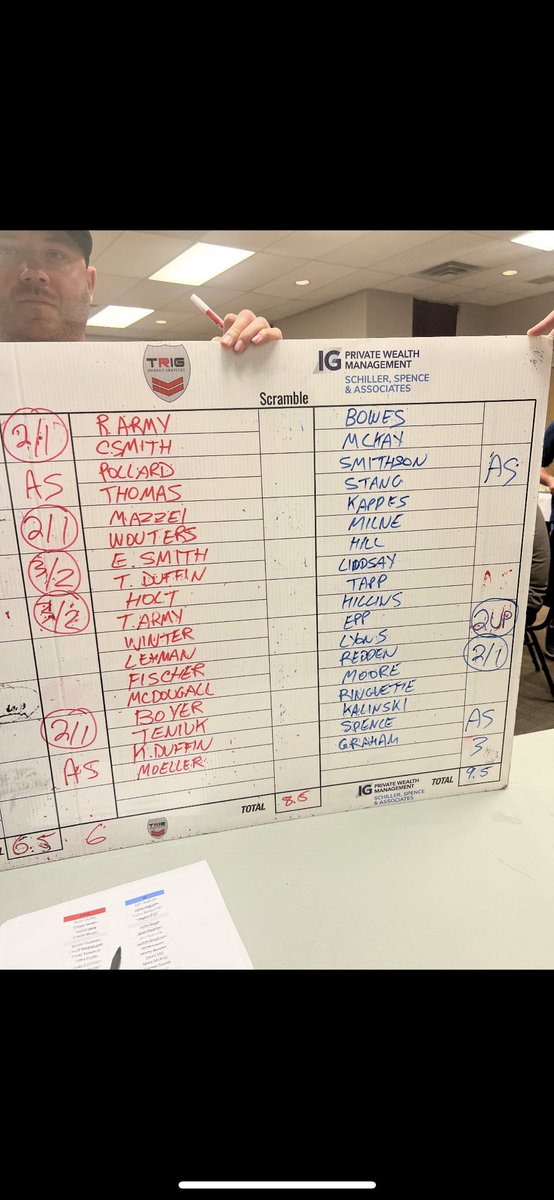 TRIG
ENERGY SERVICES
IG PRIVATE WEALTH
MANAGEMENT
SCHILLER, SPENCE
& ASSOCIATES
Scramble
2/1 R. ARMY BOWES
C.SMITH MCKAY
AS POLLARD SMITHSON AS
THOMAS STANG
2/1 MAZZEI KAPPES
WOUTERS MILNE
3/2 E. SMITH HILL
T. DUFFIN LINDSAY
3/2 HOLT TAPP
T. ARMY HILLINS
WINTER EPP 2UP
LEHMAN LYONS
FISCHER REDDEN 2/1
MCDOUGALL MOORE
2/1 BOYER RINGUETTE
TENIUK KALINSKI
AS K. DUFFIN SPENCE AS
MOELLER GRAHAM 3
6.5 6 TRIG TOTAL 8.5 IG PRIVATE WEALTH
MANAGEMENT
SCHILLER, SPENCE
& ASSOCIATES
TOTAL 9.5